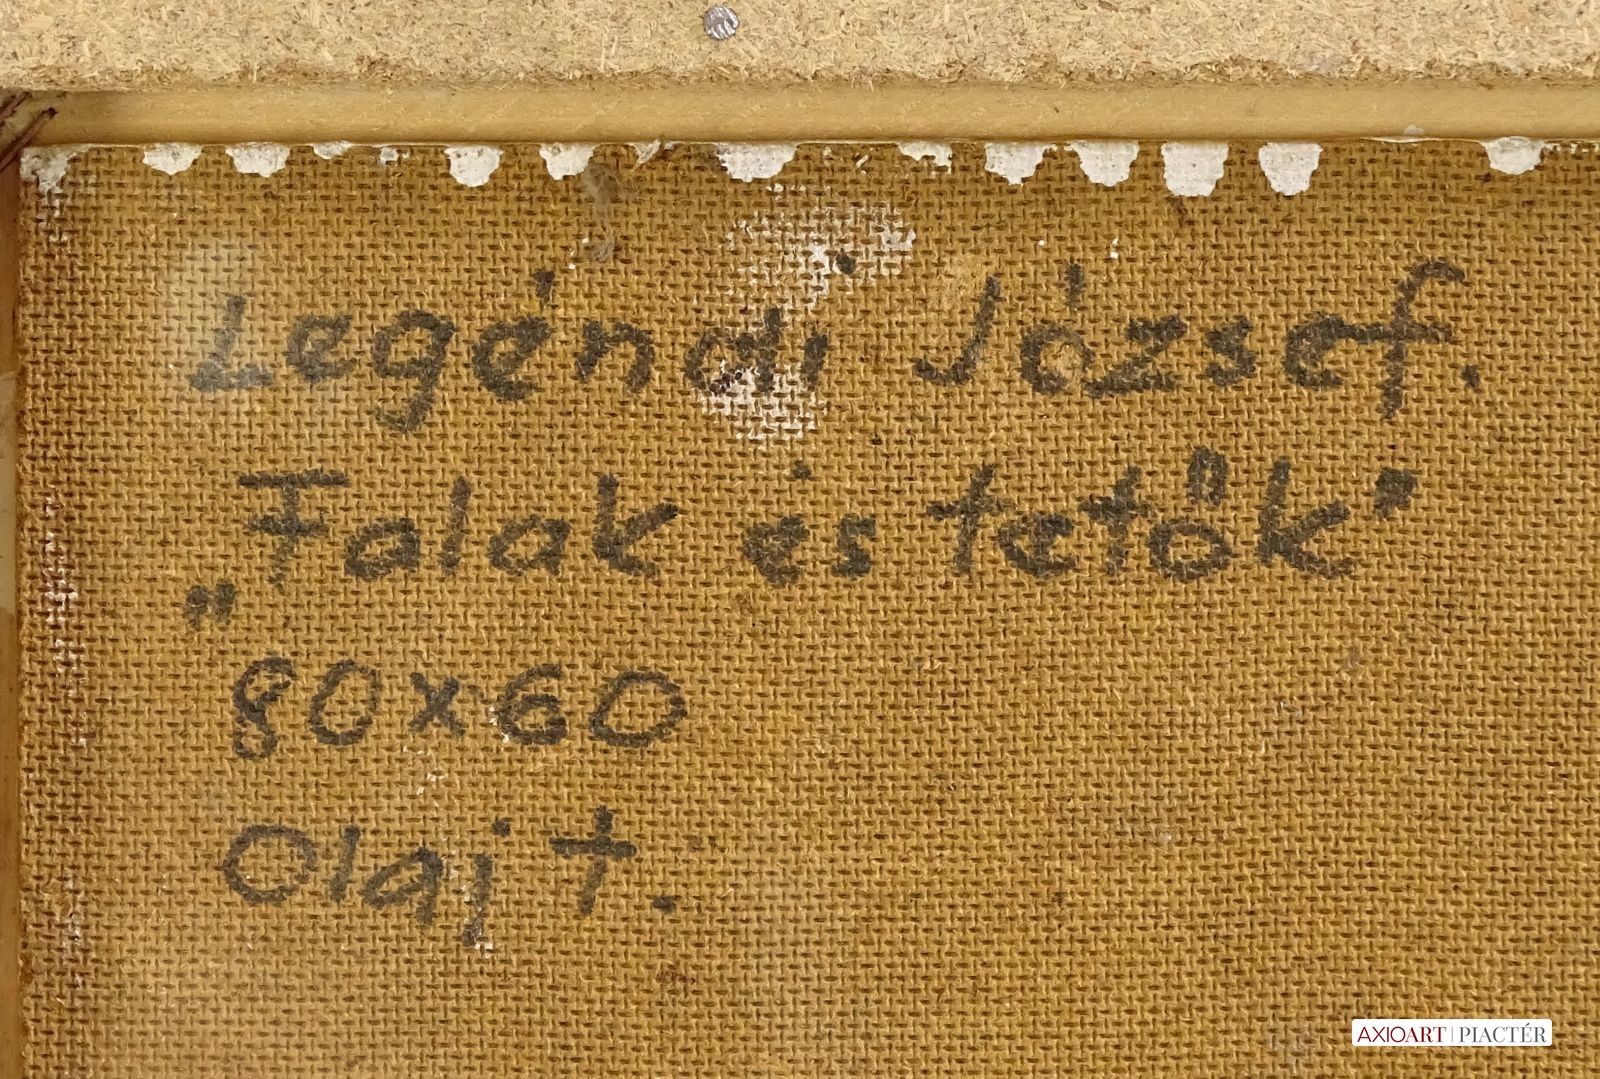 Legéndi József.
„Falak és tetők"
80x60
Olaj t.
AXIOART | PIACTÉR